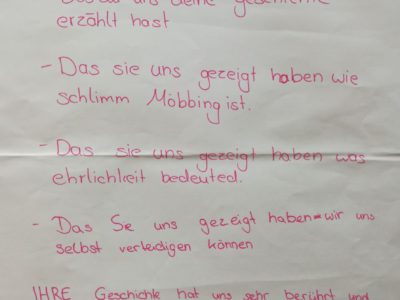 deine geschichte
erzählt hast
- Das sie uns gezeigt haben wie
schlimm Möbbing ist.
- Das sie uns gezeigt haben was
ehrlichkeit bedeuted.
- Das Se uns gezeigt haben wir uns
selbst verteidigen können
IHRE Geschichte hat uns sehr berührt und